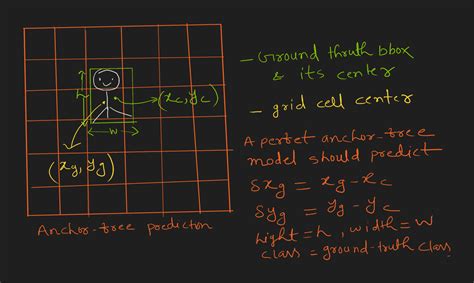 h
(xc, yc)
w
(xg, yg)
Anchor-free prediction
- Ground thruth bbox
& its center
- grid cell center
A perfet anchor-free
model should predict
δxg = xg - xc
δyg = yg - yc
hight = h, width = w
class = ground-truth class